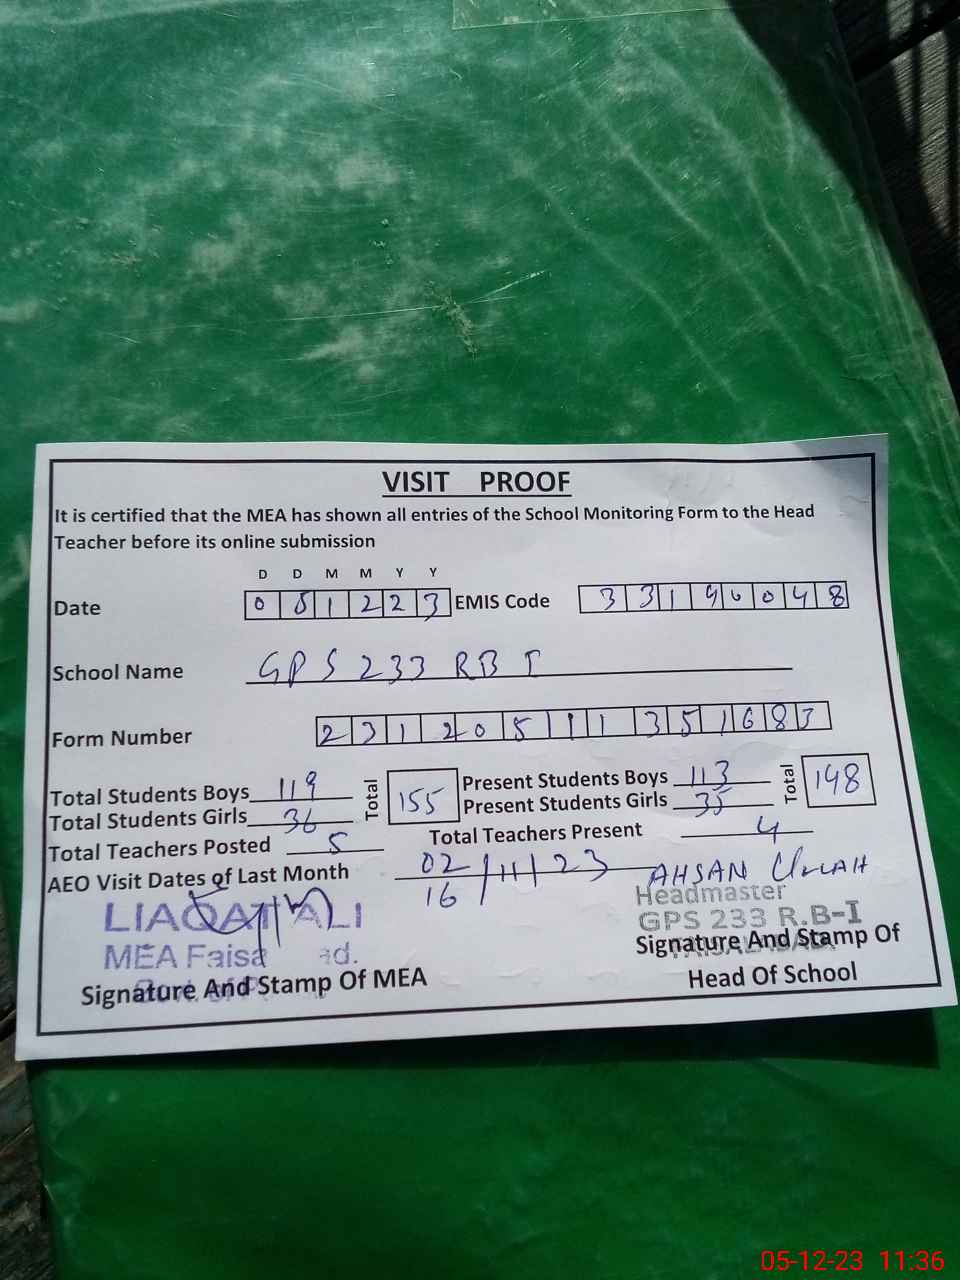 VISIT PROOF
It is certified that the MEA has shown all entries of the School Monitoring Form to the Head
Teacher before its online submission
D D M M Y Y
Date 0 5 1 2 2 3 EMIS Code 3 3 1 9 0 0 4 8
School Name GPS 233 RB I
Form Number 2 3 1 2 0 5 1 1 3 5 1 6 8 3
Total Students Boys 119 Total 155 Present Students Boys 113 Total 148
Total Students Girls 36 Present Students Girls 35
Total Teachers Posted 5 Total Teachers Present 4
AEO Visit Dates of Last Month 02/11/23 AHSAN ULLAH
16
LIAQAT ALI Headmaster
MEA GPS 233 R.B-I
Signature And Stamp Of MEA Signature And Stamp Of
Head Of School
05-12-23 11:36